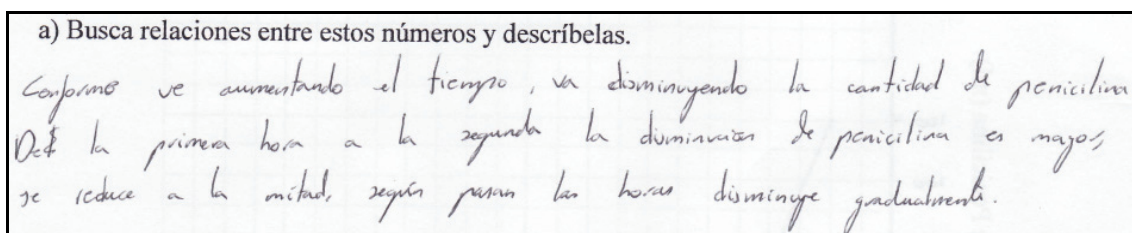 a) Busca relaciones entre estos números y descríbelas.
Conforme ve aumentando el tiempo, va disminuyendo la cantidad de penicilina
De la primera hora a la segunda la disminución de penicilina es mayor,
se reduce a la mitad, según pasan las horas disminuye gradualmente.